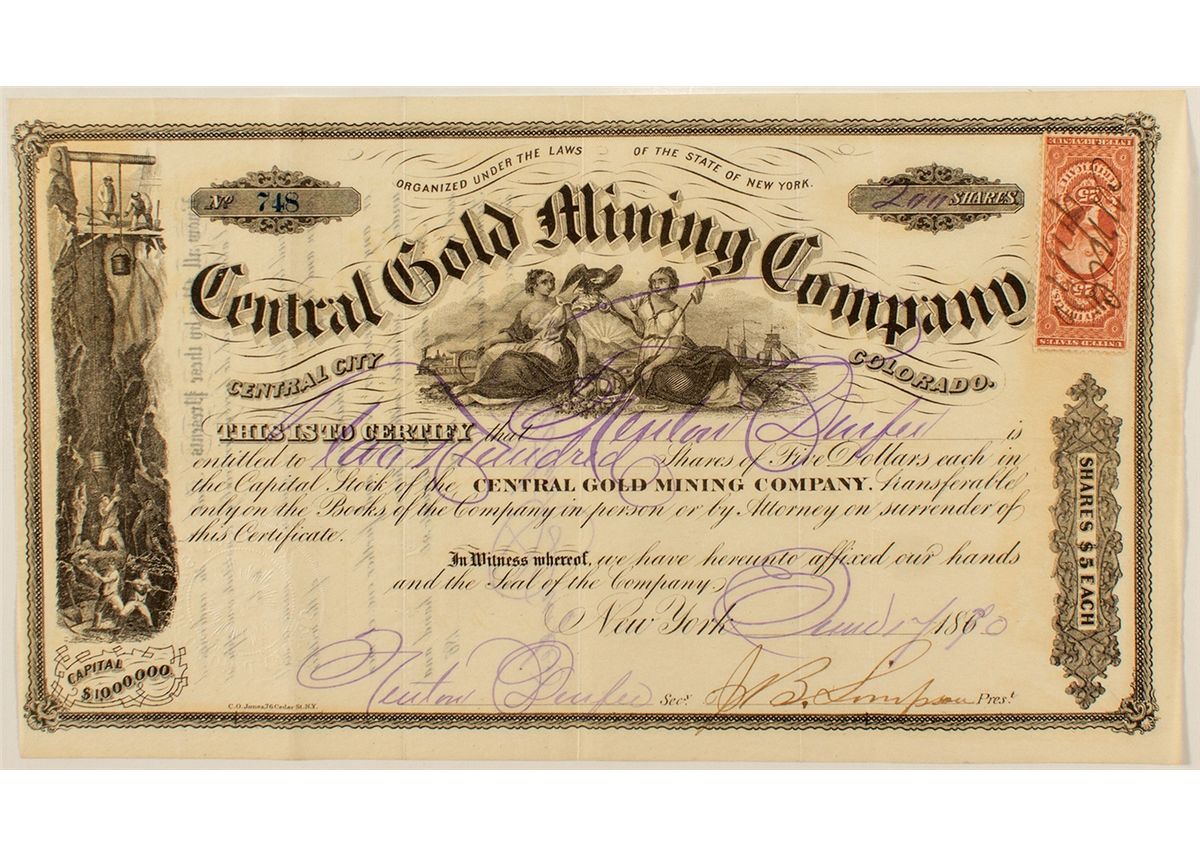 ORGANIZED UNDER THE LAWS OF THE STATE OF NEW YORK.
Nº 748
200 SHARES
Central Gold Mining Company
CENTRAL CITY COLORADO.
THIS IS TO CERTIFY that is
entitled to Two Hundred Shares of Five Dollars each in
the Capital Stock of the CENTRAL GOLD MINING COMPANY. Transferable
only on the Books of the Company in person or by Attorney on surrender of
this Certificate.
In Witness whereof, we have hereunto affixed our hands
and the Seal of the Company,
New York June 17 1880
Secy. J. B. Simpson Prest.
C.O. Jones, 76 Cedar St. N.Y.
CAPITAL
$1000,000.
SHARES $5 EACH
UNITED STATES
25